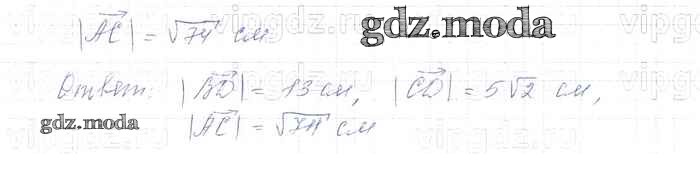 |AC| = √74 см
gdz.moda
Ответ: |BD| = 13 см, |CD| = 5√2 см,
gdz.moda
|AC| = √74 см